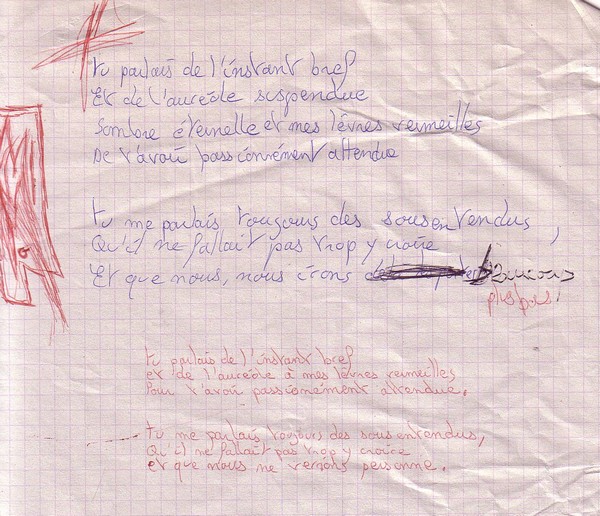 tu parlais de l'instant bref
Et de l'auréole suspendue
Sombre éternelle et mes lèvres vermeilles
De t'avoir passionnément attendue
tu me parlais toujours des sous entendus,
Qu'il ne fallait pas trop y croire
Et que nous, nous irons
plus pas
tu parlais de l'instant bref
et de l'auréole à mes lèvres vermeilles
Pour t'avoir passionnément attendue.
tu me parlais toujours des sous entendus,
Qu'il ne fallait pas trop y croire
et que nous ne verrons personne.